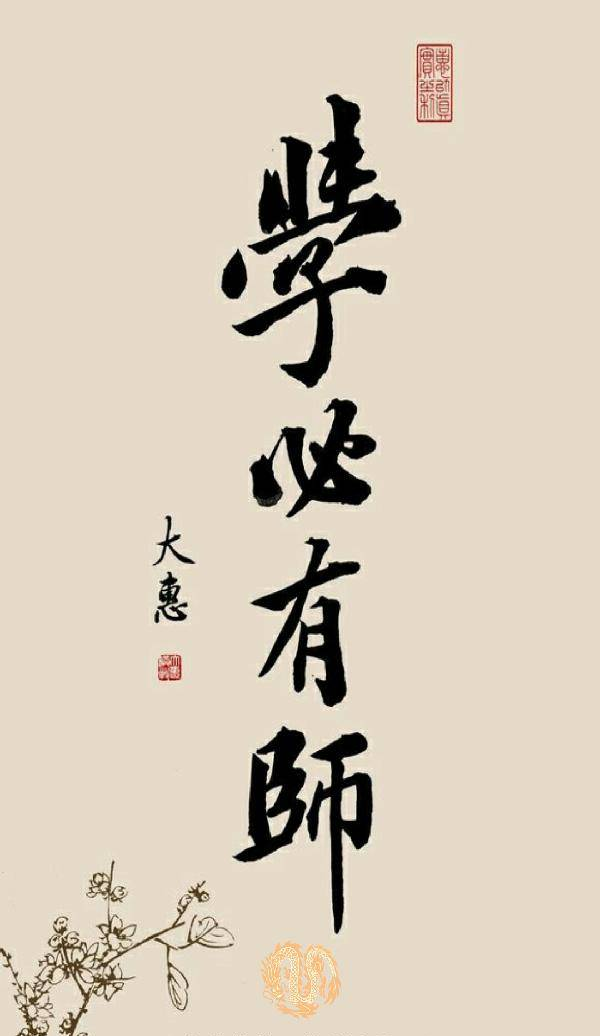 學必有師
大惠